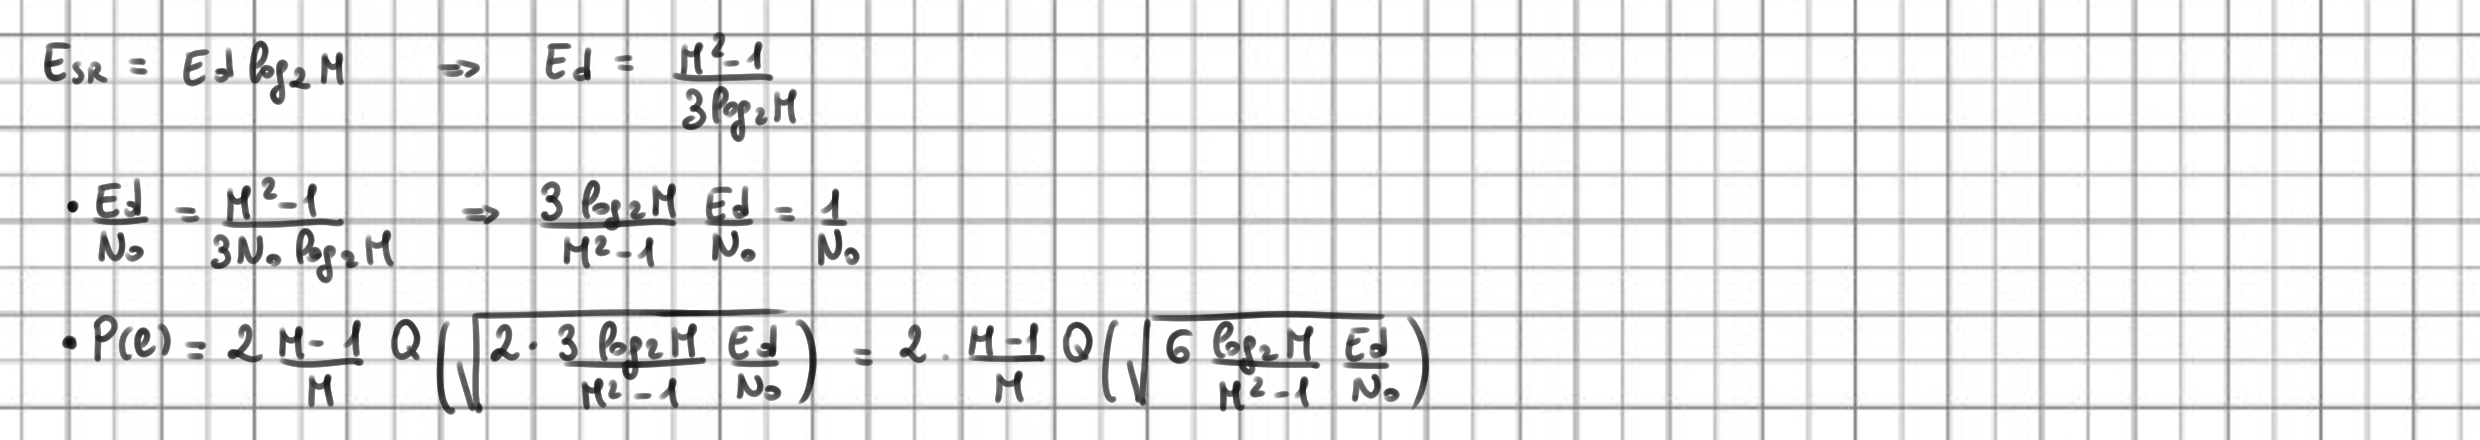 E_SR = Ed log₂M ⇒ Ed = (M²-1)/(3log₂M)
• Ed/N₀ = (M²-1)/(3N₀ log₂M) ⇒ (3 log₂M)/(M²-1) Ed/N₀ = 1/N₀
• P(e) = 2 (M-1)/M Q(√(2 · 3 (log₂M)/(M²-1) Ed/N₀)) = 2 · (M-1)/M Q(√(6 (log₂M)/(M²-1) Ed/N₀))